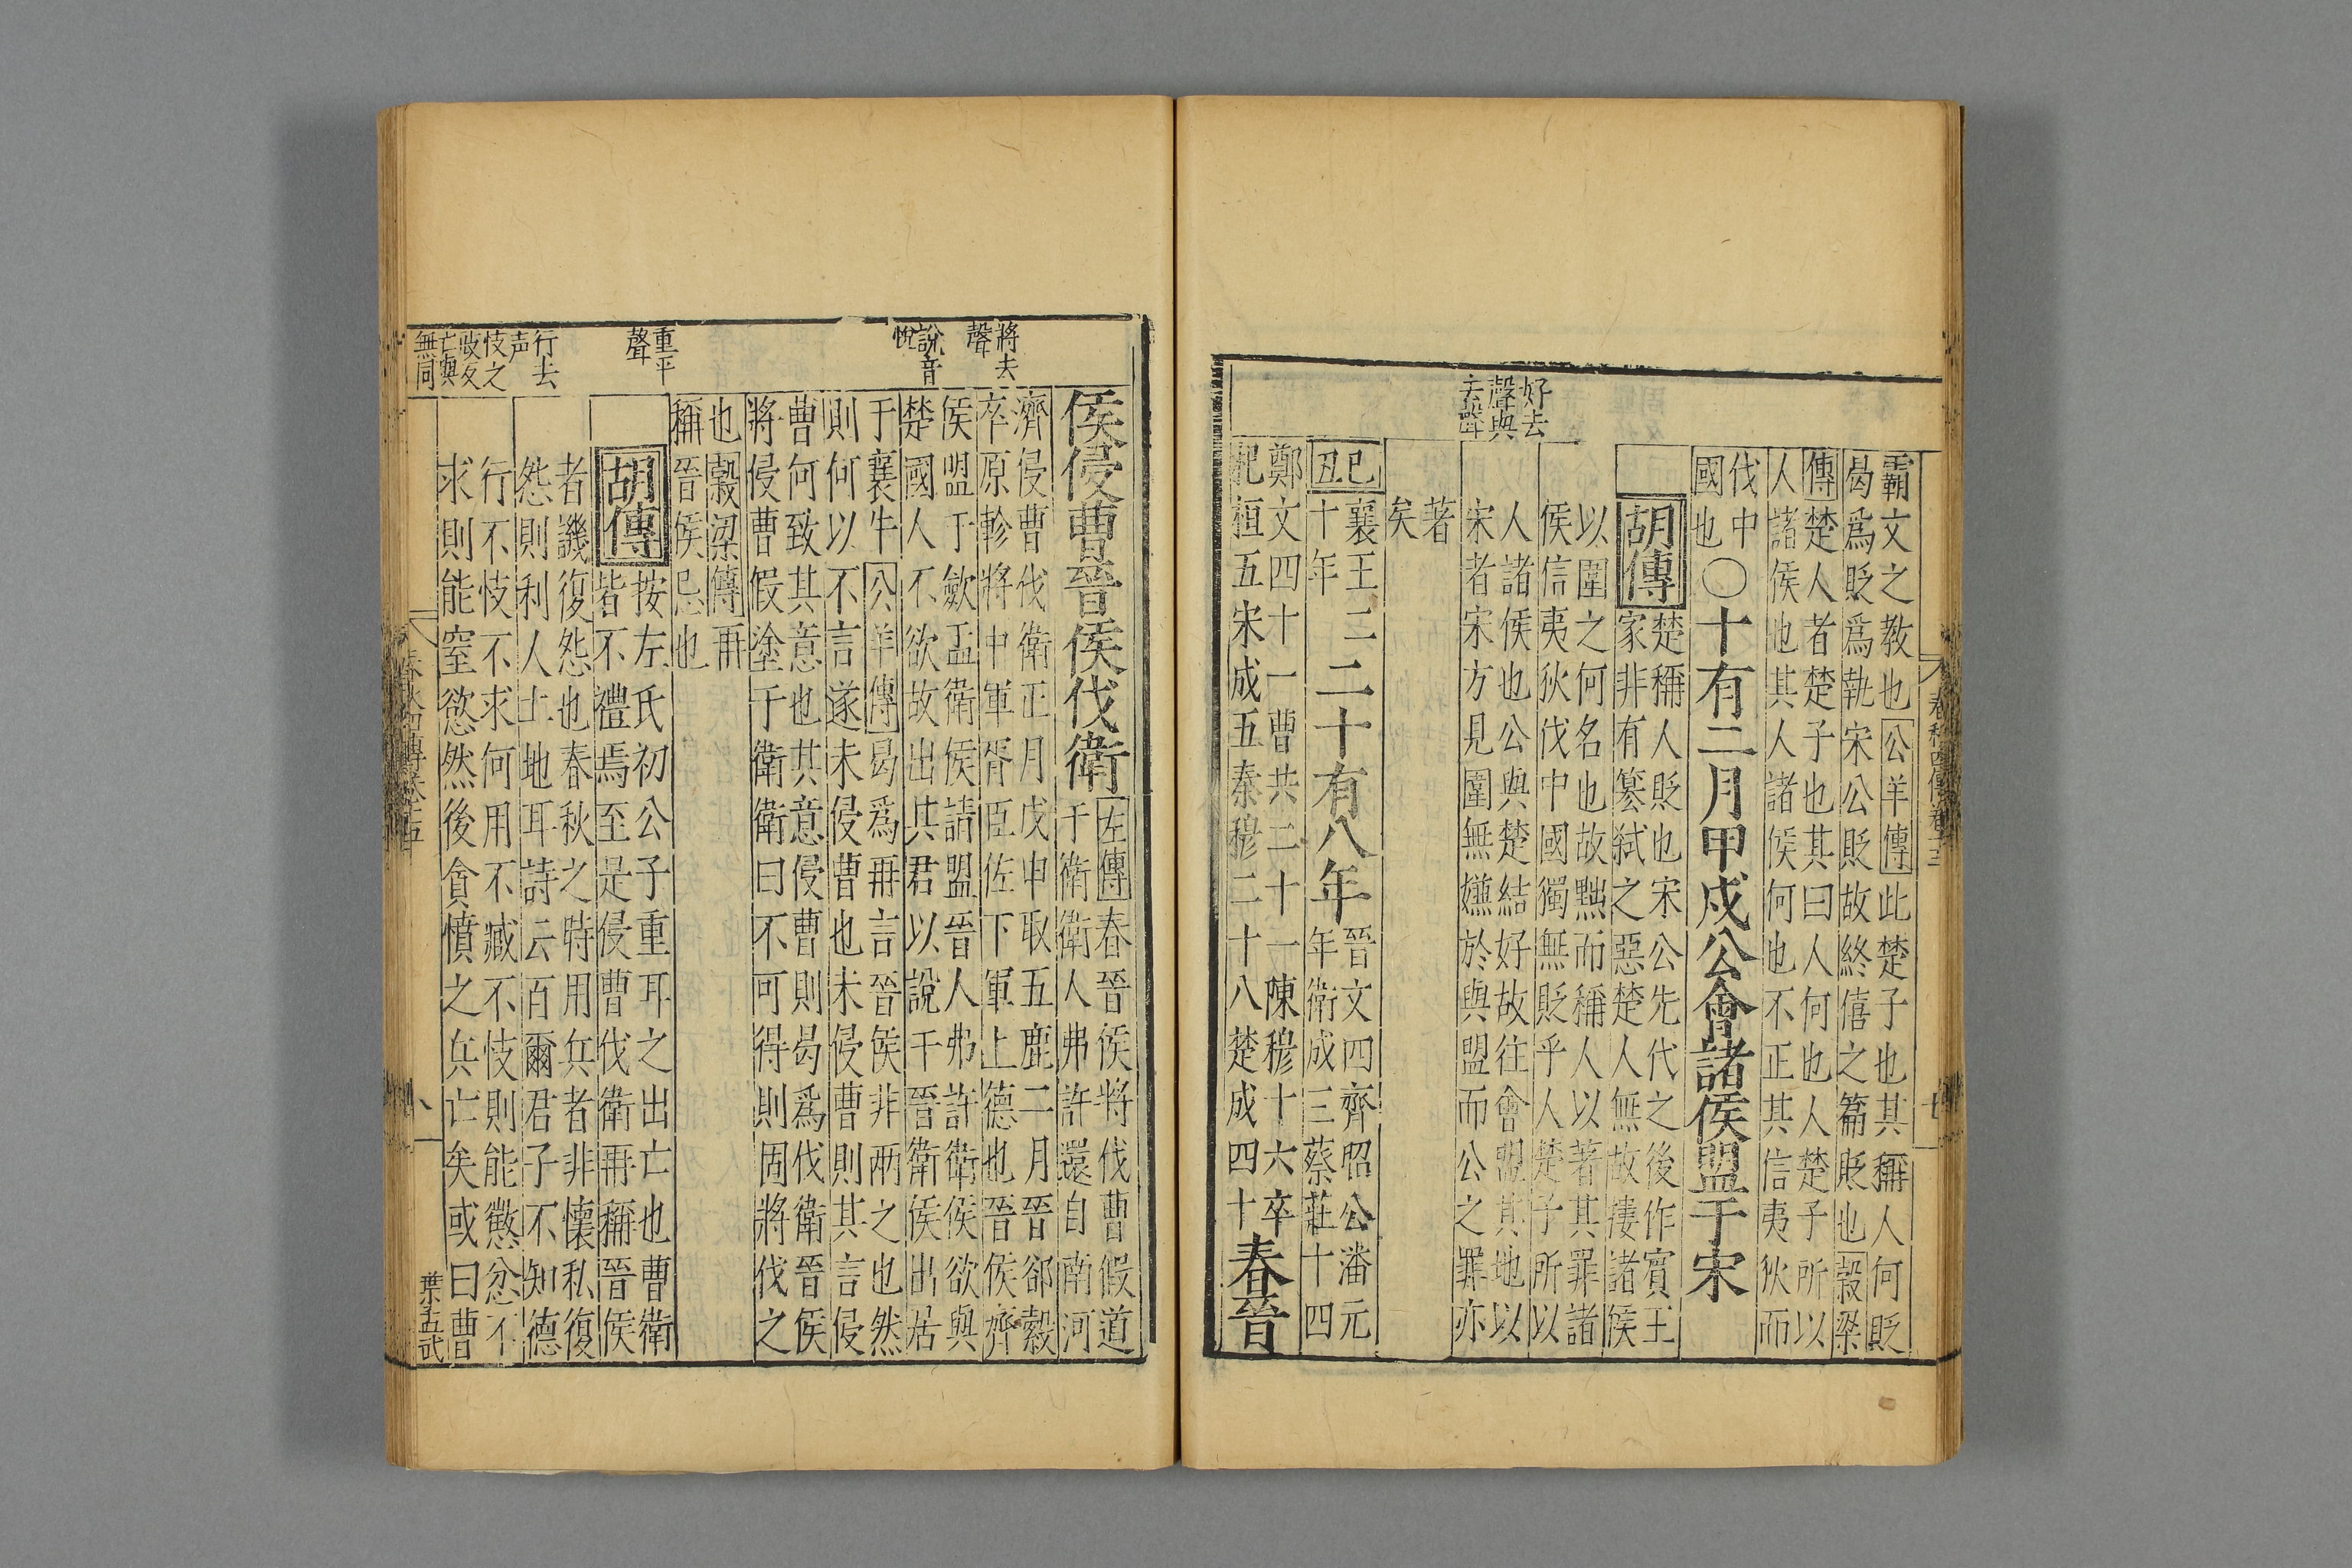 霸文之教也公羊傳此楚子也其稱人何貶
曷爲貶爲執宋公貶故終僖之篇貶也穀梁
傳楚人者楚子也其曰人何也人楚子所以
人諸侯也其人諸侯何也不正其信夷狄而
伐中
國也
〇十有二月甲戌公會諸侯盟于宋
胡傳
楚稱人貶也宋公先代之後作賓王
家非有篡弒之惡楚人無故摟諸侯
以圍之何名也故黜而稱人以著其罪諸
侯信夷狄伐中國獨無貶乎人楚子所以
人諸侯也公與楚結好故往會盟其地以
宋者宋方見圍無嫌於與盟而公之罪亦
著
矣
好去
聲與
去聲
己
丑
襄王二
十年
二十有八年
晉文四齊昭公潘元
年衛成三蔡莊十四
鄭文四十一曹共二十一陳穆十六卒
杞桓五宋成五秦穆二十八楚成四十
春晉
侯侵曹晉侯伐衛
左傳春晉侯將伐曹假道
于衛衛人弗許還自南河
濟侵曹伐衛正月戊申取五鹿二月晉郤縠
卒原軫將中軍胥臣佐下軍上德也晉侯齊
侯盟于斂盂衛侯請盟晉人弗許衛侯欲與
楚國人不欲故出其君以說于晉衛侯出居
于襄牛公羊傳曷爲再言晉侯非兩之也然
則何以不言遂未侵曹也未侵曹則其言侵
曹何致其意也其意侵曹則曷爲伐衛晉侯
將侵曹假塗于衛衛曰不可得則固將伐之
也穀梁傳再
稱晉侯忌也
胡傳
按左氏初公子重耳之出亡也曹衛
皆不禮焉至是侵曹伐衛再稱晉侯
者譏復怨也春秋之時用兵者非懷私復
怨則利人土地耳詩云百爾君子不知德
行不忮不求何用不臧不忮則能懲忿不
求則能窒慾然後貪憤之兵亡矣或曰曹
將去
聲
說音
悅
重平
聲
行去
声
忮之
豉反
亡與
無同
葉五武